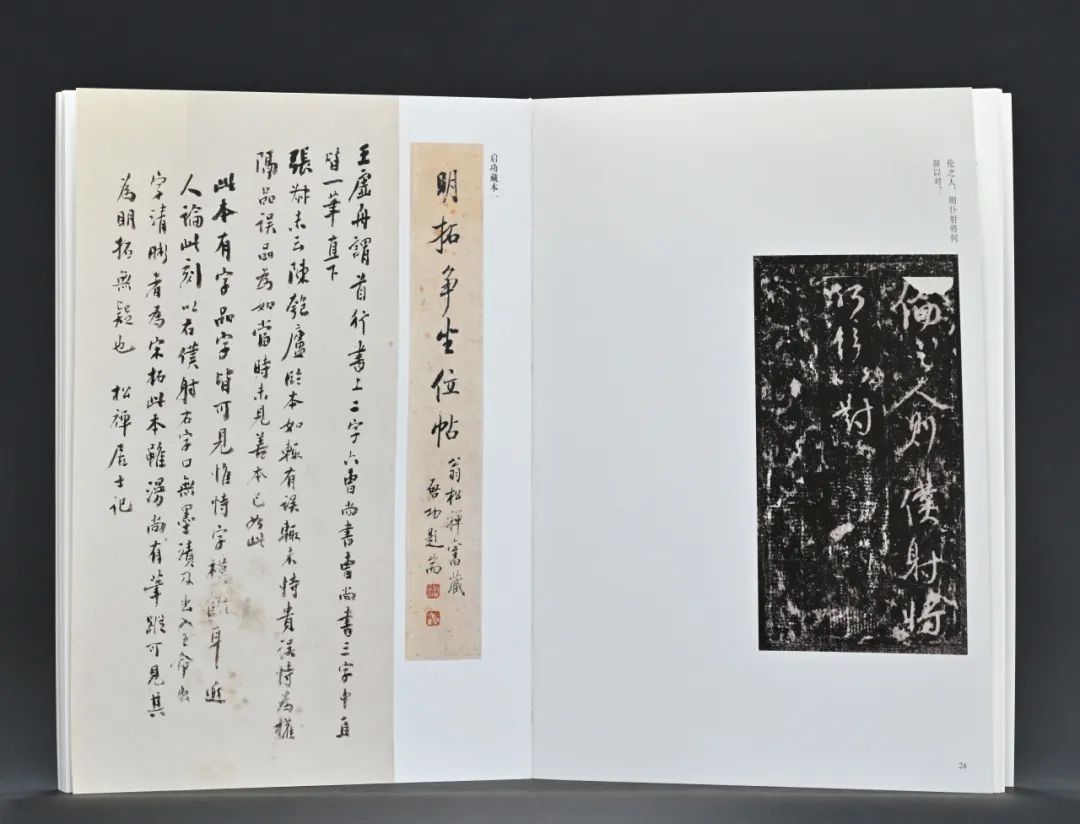 伦之人，则仆射将何
辞以对？
倫之人則僕射將
何辭以對
24
启功藏本一
明拓争坐位帖
翁松禪舊藏
启功題耑
王虛舟謂首行書上二字六曹尚書曹尚書三字中直
皆一筆直下
張叔未云陳匏廬臨本如輒有误輒未恃貴误恃為權
隔品误品為如當時未見善本已如此
此本有字品字皆可見惟恃字模耳近
人論此刻以右僕射右字口無墨漬及出入王命出
字清晰者為宋拓此本雖漫尚有筆蹤可見其
為明拓無疑也 松禪居士記